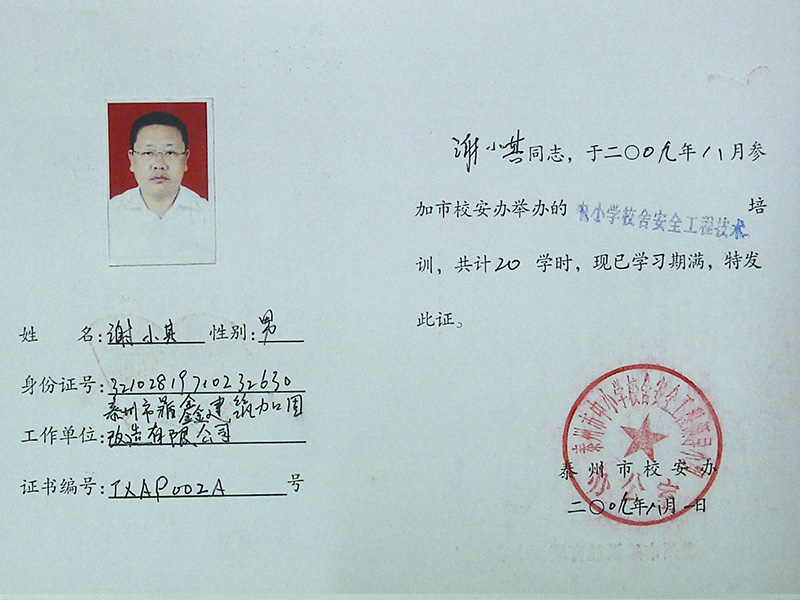 姓 名：谢小其 性别：男
身份证号：321028197102232630
泰州市 鑫建筑加固
工作单位：改造有限公司
证书编号：TXAP002A 号
谢小其同志，于二〇〇九年八月参
加市校安办举办的 中小学校舍安全工程技术 培
训，共计20学时，现已学习期满，特发
此证。
泰州市中小学校舍安全工程领导小组
办公室
泰州市校安办
二〇〇九年八月一日